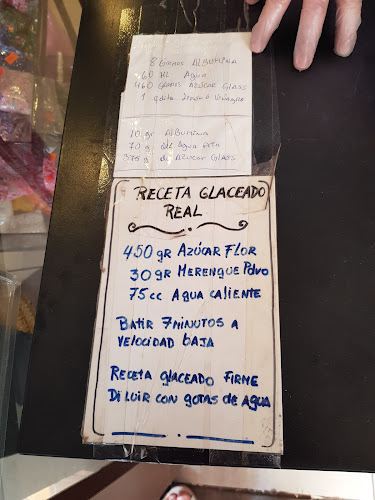 8 gramos ALBUMINA
60 ML Agua
460 gramos AZUCAR GLASS
1 gotita limón o vinagre
10 gr ALBUMINA
70 g de Agua
375 g de AZUCAR GLASS
RECETA GLACEADO
REAL
450 gr AZÚCAR FLOR
30 gr MERENGUE POLVO
75 cc AGUA CALIENTE
BATIR 7 MINUTOS A
VELOCIDAD BAJA
RECETA GLACEADO FIRME
DILUIR CON GOTAS DE AGUA